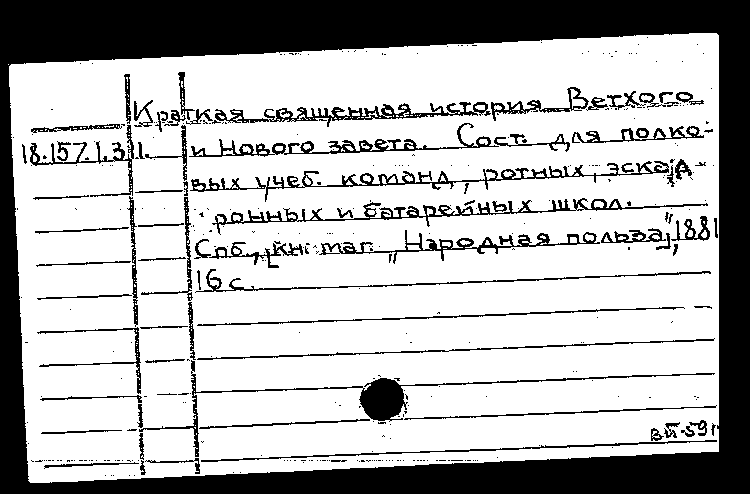 Краткая священная история Ветхого
18.157.1.311. и Нового завета. Сост. для полко-
вых учеб. команд, ротных, эскад-
ронных и батарейных школ.
Спб., [кн. маг. "Народная польза"], 1881
16 с.